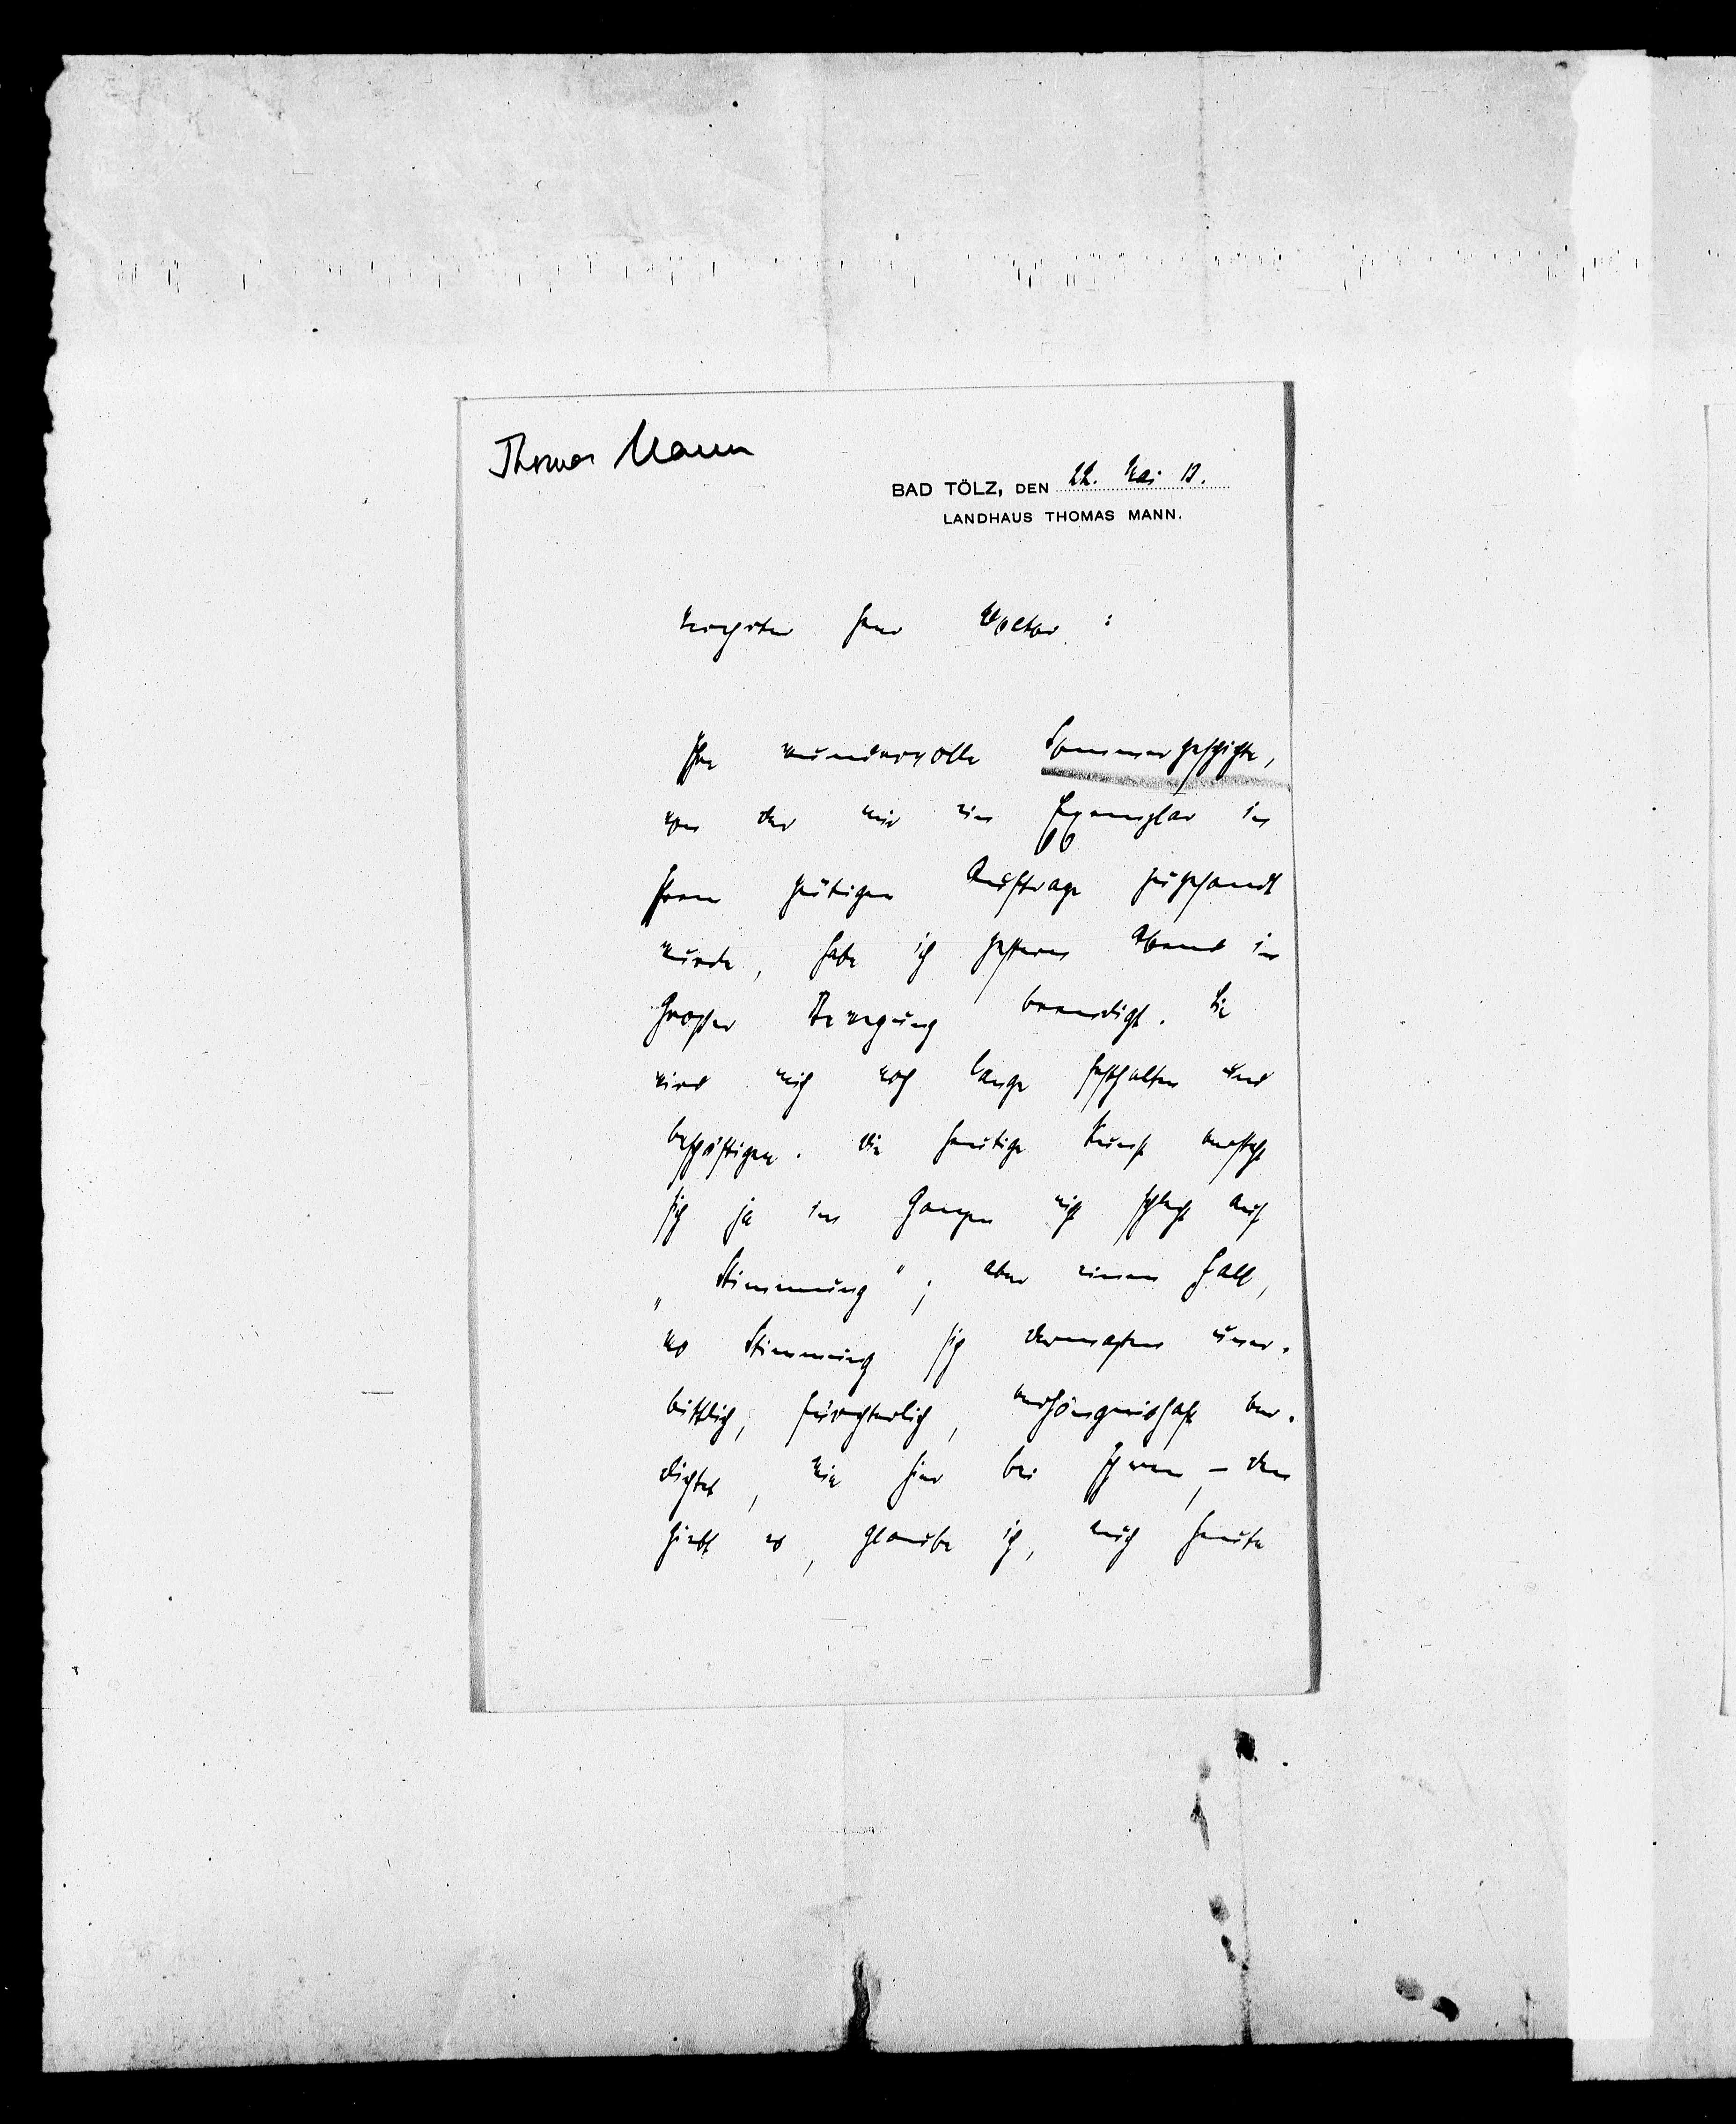 Thomas Mann
BAD TÖLZ, DEN 22. Mai 13.
LANDHAUS THOMAS MANN.
Herr Doktor:
Ihre wundervolle Sommergeschichte,
von der mir ein Exemplar in
Ihrem gütigen Auftrage zugesandt
wurde, habe ich gestern Abend in
großer Bewegung beendigt. Sie
wird mich noch lange festhalten und
beschäftigen. Die heutige Kunst versteht
sich ja im Ganzen nicht schlecht auf
„Stimmung"; aber einen Fall,
wo Stimmung sich dermaßen uner-
bittlich, fürchterlich, verhängnishaft ver-
dichtet, wie hier bei Ihnen, – den
giebt es, glaube ich, auch heute